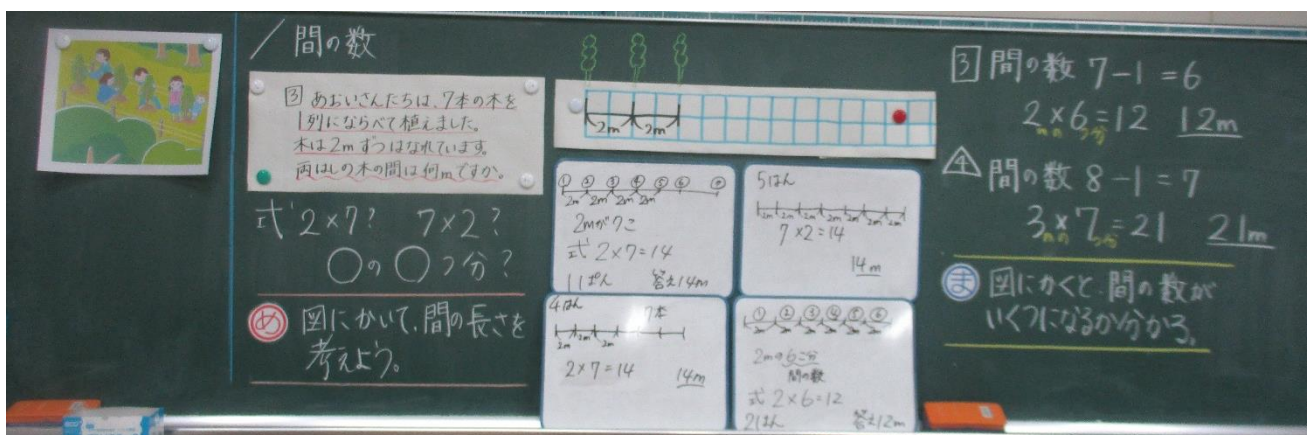 間の数
③ あおいさんたちは、7本の木を
1列にならべて植えました。
木は2mずつはなれています。
両はしの木の間は何mですか。
式 2×7? 7×2?
○の○つ分?
め 図にかいて、間の長さを
考えよう。
2m 2m
① ② ③ ④ ⑤ ⑥ ⑦
2m 2m 2m 2m
2mが7こ
式 2×7=14
1ぱん 答え14m
5はん
2m 2m 2m 2m 2m 2m 2m
7×2=14
14m
4はん 7本
2m 2m 2m
2×7=14 14m
① ② ③ ④ ⑤ ⑥
2m 2m 2m 2m 2m 2m
2mの6こ分
間の数
式 2×6=12
2はん 答え12m
3 間の数 7-1=6
2×6=12 12m
mの つ分
4 間の数 8-1=7
3×7=21 21m
mの つ分
ま 図にかくと、間の数が
いくつになるか分かる。